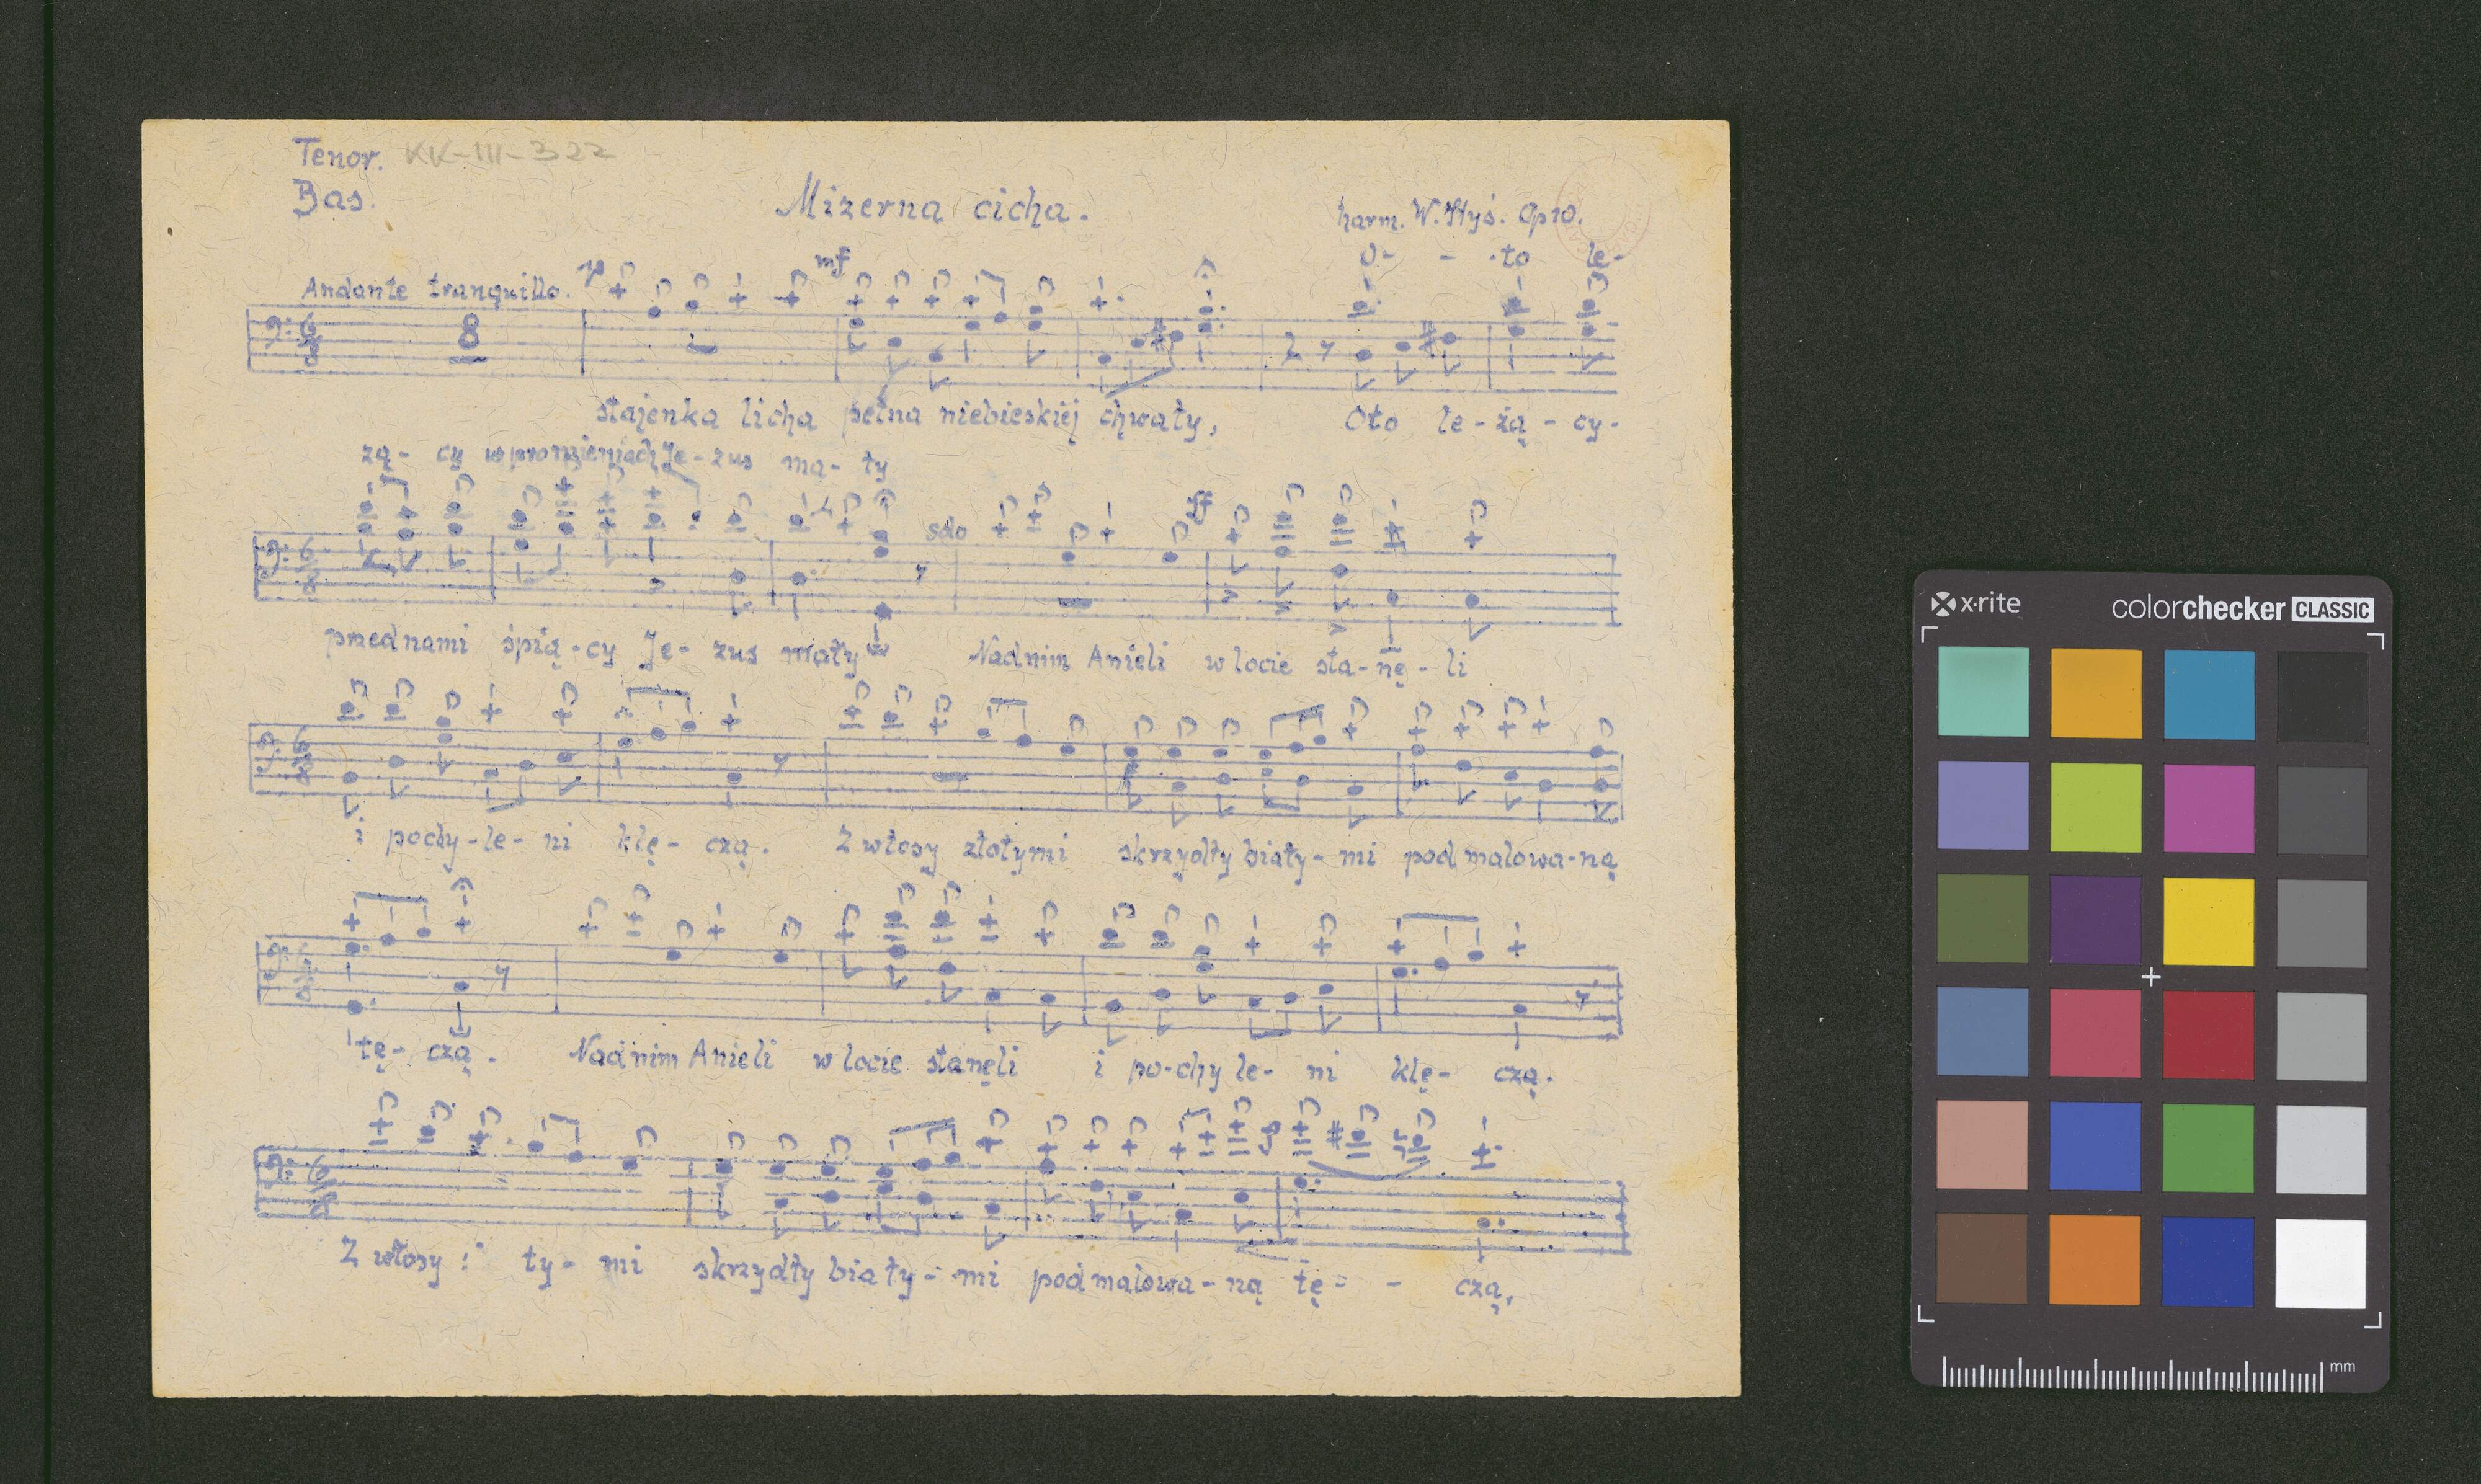 Tenor. KK-III-322
Bas.
Mizerna cicha.
harm. W. Op 10.
O- - to le-
Andante tranquillo. p mf
6 8 8
stajenka licha pełna niebieskiej chwały, Oto le-żą-cy-
żą- cy w promieniach Je-zus ma-ły
solo ff
6 8
przed nami śpią-cy Je-zus mały Nad nim Anieli w locie sta-nę-li
6 8
i pochy-le-ni klę-czą. Z włosy złotymi skrzydły biały-mi pod malowa-ną
6 8
tę-czą. Nad nim Anieli w locie stanęli i po-chy le-ni klę-czą.
6 8
Z włosy ty-mi skrzydły biały-mi pod malowa-ną tę- - czą.
x·rite colorchecker CLASSIC
mm